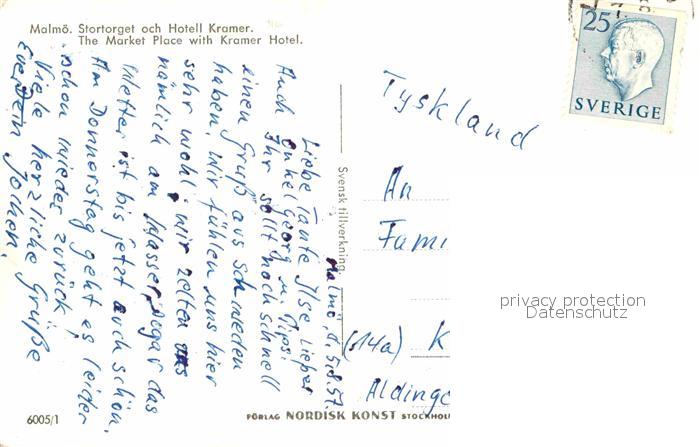 Malmö. Stortorget och Hotell Kramer.
The Market Place with Kramer Hotel.
25
SVERIGE
Malmö, d. 5.8.57.
Liebe Tante Ilse, lieber
Onkel Georg u. Pips!
Auch Ihr sollt noch schnell
einen Gruß aus Schweden
haben. Wir fühlen uns hier
sehr wohl, wir zelten
nämlich am Wasser, sogar das
Wetter ist bis jetzt auch schön.
Am Donnerstag geht es leider
schon wieder zurück!
Viele herzliche Grüße
Euer Jochen.
Svensk tillverkning.
Tyskland
An
Fami
(14a) K
Aldinge
6005/1
FÖRLAG NORDISK KONST STOCKHOL
privacy protection
Datenschutz